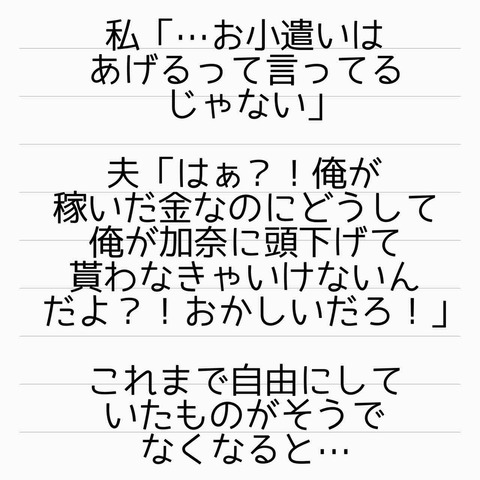 私「…お小遣いは
あげるって言ってる
じゃない」
夫「はぁ？！俺が
稼いだ金なのにどうして
俺が加奈に頭下げて
貰わなきゃいけないん
だよ？！おかしいだろ！」
これまで自由にして
いたものがそうで
なくなると…